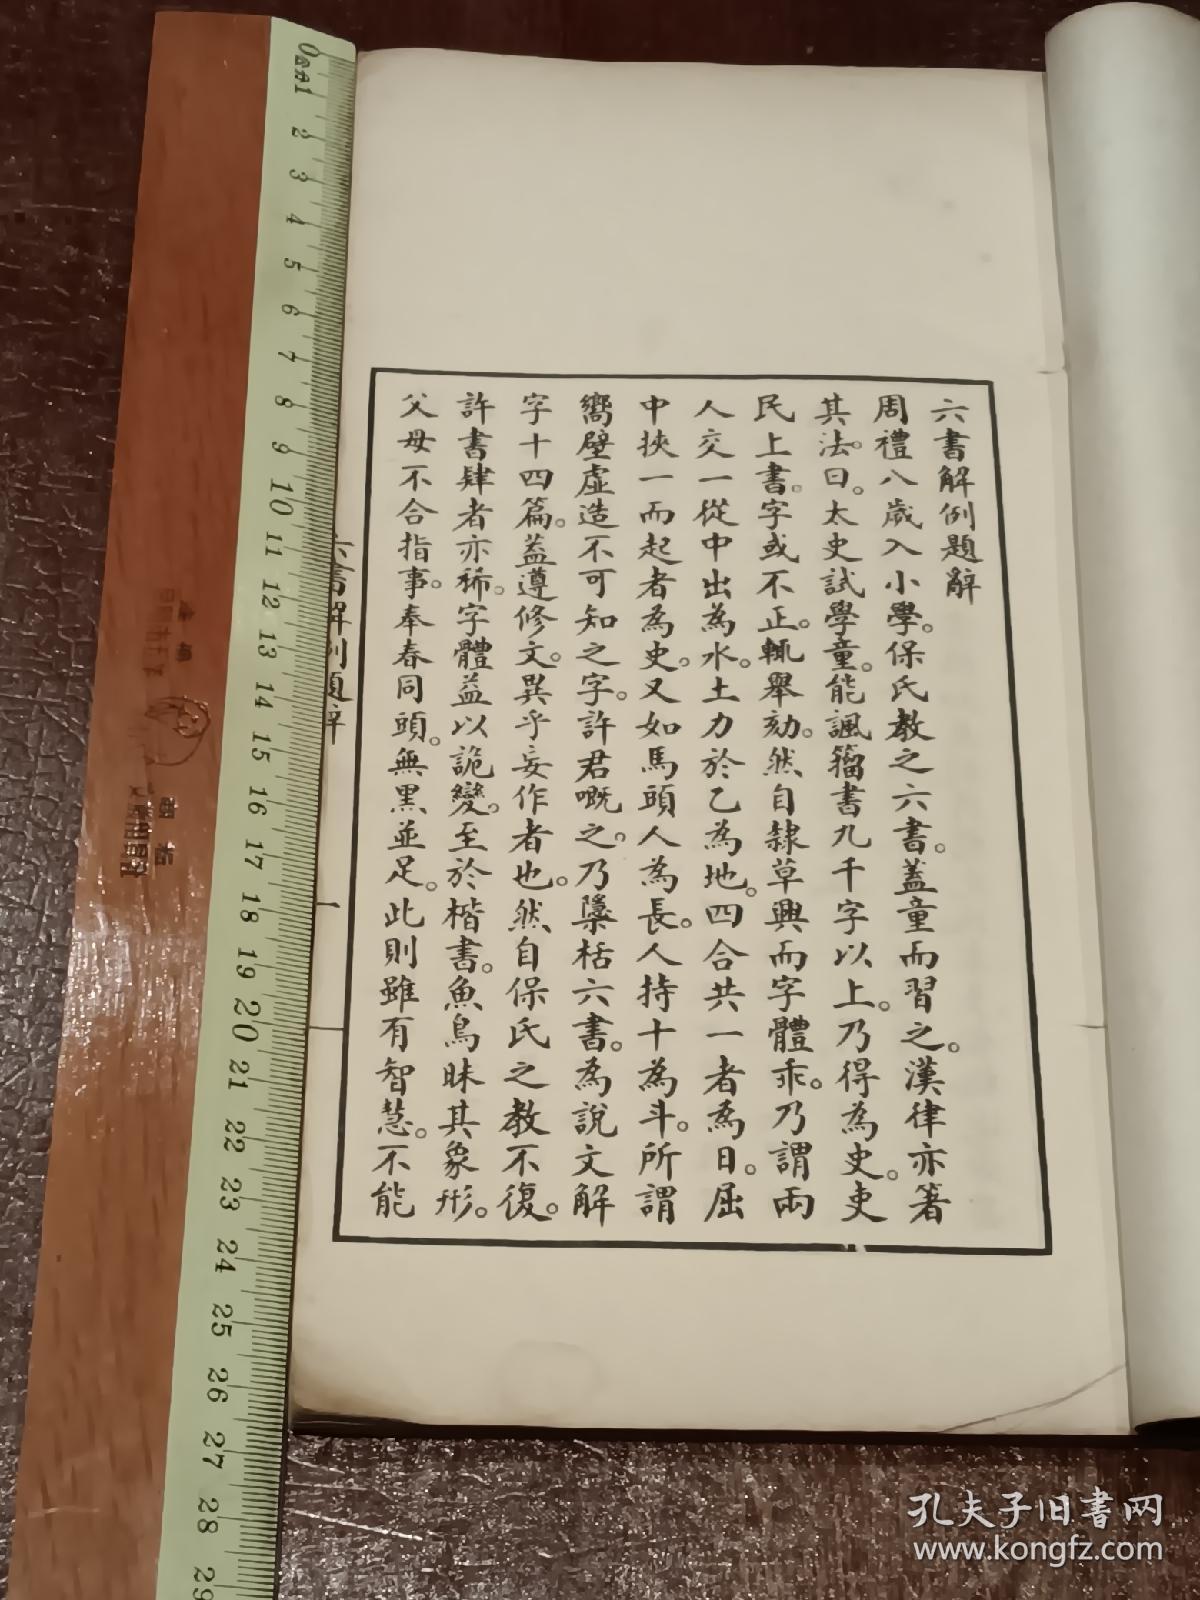 六書解例題辭
周禮八歲入小學。保氏教之六書。蓋童而習之。漢律亦箸
其法。曰。太史試學童。能諷籀書九千字以上。乃得為史。吏
民上書。字或不正。輒舉劾。然自隸草興而字體乖。乃謂兩
人交一從中出為水。土力於乙為地。四合共一者為日。屈
中挾一而起者為史。又如馬頭人為長。人持十為斗。所謂
嚮壁虛造不可知之字。許君嘅之。乃檃栝六書。為說文解
字十四篇。蓋遵修文。異乎妄作者也。然自保氏之教不復。
許書肄者亦稀。字體益以詭變。至於楷書。魚鳥昧其象形。
父母不合指事。奉春同頭。無黑並足。此則雖有智慧。不能
六書解例題辭
一
0 1 2 3 4 5 6 7 8 9 10 11 12 13 14 15 16 17 18 19 20 21 22 23 24 25 26 27 28 29
孔夫子旧书网
www.kongfz.com